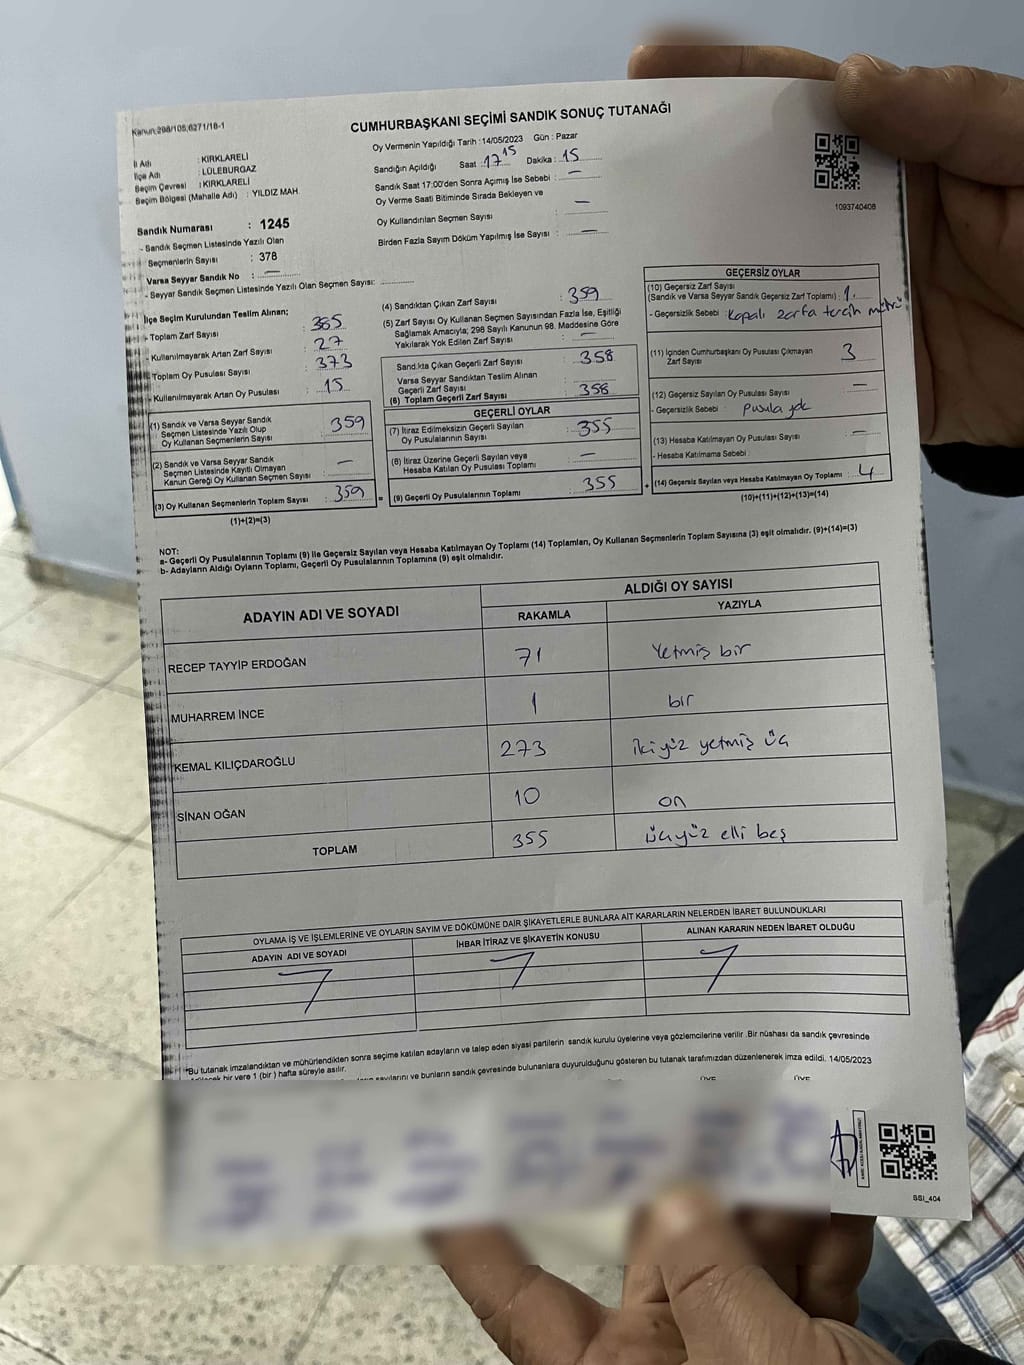 Kanun;298/105;6271/18-1
CUMHURBAŞKANI SEÇİMİ SANDIK SONUÇ TUTANAĞI
Oy Vermenin Yapıldığı Tarih : 14/05/2023 Gün : Pazar
İl Adı : KIRKLARELİ
İlçe Adı : LÜLEBURGAZ
Seçim Çevresi : KIRKLARELİ
Seçim Bölgesi (Mahalle Adı) : YILDIZ MAH.
Sandığın Açıldığı Saat : 17 15 Dakika : 15
Sandık Saat 17:00'den Sonra Açmış İse Sebebi : —
Oy Verme Saati Bitiminde Sırada Bekleyen ve
Oy Kullandırılan Seçmen Sayısı : —
Birden Fazla Sayım Döküm Yapılmış İse Sayısı : —
1093740408
Sandık Numarası : 1245
- Sandık Seçmen Listesinde Yazılı Olan
Seçmenlerin Sayısı : 378
Varsa Seyyar Sandık No : —
- Seyyar Sandık Seçmen Listesinde Yazılı Olan Seçmen Sayısı:
İlçe Seçim Kurulundan Teslim Alınan;
- Toplam Zarf Sayısı : 385
- Kullanılmayarak Artan Zarf Sayısı : 27
- Toplam Oy Pusulası Sayısı : 373
- Kullanılmayarak Artan Oy Pusulası : 15
(1) Sandık ve Varsa Seyyar Sandık
Seçmen Listesinde Yazılı Olup
Oy Kullanan Seçmenlerin Sayısı : 359
(2) Sandık ve Varsa Seyyar Sandık
Seçmen Listesinde Kayıtlı Olmayan
Kanun Gereği Oy Kullanan Seçmen Sayısı : —
(3) Oy Kullanan Seçmenlerin Toplam Sayısı : 359 =
(1)+(2)=(3)
(4) Sandıktan Çıkan Zarf Sayısı : 359
(5) Zarf Sayısı Oy Kullanan Seçmen Sayısından Fazla İse, Eşitliği
Sağlamak Amacıyla; 298 Sayılı Kanunun 98. Maddesine Göre
Yakılarak Yok Edilen Zarf Sayısı : —
Sandıkta Çıkan Geçerli Zarf Sayısı : 358
Varsa Seyyar Sandıktan Teslim Alınan
Geçerli Zarf Sayısı
(6) Toplam Geçerli Zarf Sayısı : 358
GEÇERLİ OYLAR
(7) İtiraz Edilmeksizin Geçerli Sayılan
Oy Pusulalarının Sayısı : 355
(8) İtiraz Üzerine Geçerli Sayılan veya
Hesaba Katılan Oy Pusulası Toplamı : —
(9) Geçerli Oy Pusulalarının Toplamı : 355 +
GEÇERSİZ OYLAR
(10) Geçersiz Zarf Sayısı
(Sandık ve Varsa Seyyar Sandık Geçersiz Zarf Toplamı) : 1
- Geçersizlik Sebebi : Kapalı zarfa tercih mührü
(11) İçinden Cumhurbaşkanı Oy Pusulası Çıkmayan
Zarf Sayısı : 3
(12) Geçersiz Sayılan Oy Pusulası Sayısı : —
- Geçersizlik Sebebi : pusula yok
(13) Hesaba Katılmayan Oy Pusulası Sayısı : —
- Hesaba Katılmama Sebebi :
(14) Geçersiz Sayılan veya Hesaba Katılmayan Oy Toplamı : 4
(10)+(11)+(12)+(13)=(14)
NOT:
a- Geçerli Oy Pusulalarının Toplamı (9) ile Geçersiz Sayılan veya Hesaba Katılmayan Oy Toplamı (14) Toplamları, Oy Kullanan Seçmenlerin Toplam Sayısına (3) eşit olmalıdır. (9)+(14)=(3)
b- Adayların Aldığı Oyların Toplamı, Geçerli Oy Pusulalarının Toplamına (9) eşit olmalıdır.
ADAYIN ADI VE SOYADI ALDIĞI OY SAYISI
RAKAMLA YAZIYLA
RECEP TAYYİP ERDOĞAN 71 Yetmiş bir
MUHARREM İNCE 1 bir
KEMAL KILIÇDAROĞLU 273 ikiyüz yetmiş üç
SİNAN OĞAN 10 on
TOPLAM 355 üçyüz elli beş
OYLAMA İŞ VE İŞLEMLERİNE VE OYLARIN SAYIM VE DÖKÜMÜNE DAİR ŞİKAYETLERLE BUNLARA AİT KARARLARIN NELERDEN İBARET BULUNDUKLARI
ADAYIN ADI VE SOYADI İHBAR İTİRAZ VE ŞİKAYETİN KONUSU ALINAN KARARIN NEDEN İBARET OLDUĞU
*Bu tutanak imzalandıktan ve mühürlendikten sonra seçime katılan adayların ve talep eden siyasi partilerin sandık kurulu üyelerine veya gözlemcilerine verilir .Bir nüshası da sandık çevresinde
bir yere 1 (bir ) hafta süreyle asılır.
sayılarını ve bunların sandık çevresinde bulunanlara duyurulduğunu gösteren bu tutanak tarafımızdan düzenlenerek imza edildi. 14/05/2023
ÜYE ÜYE
SSI_404